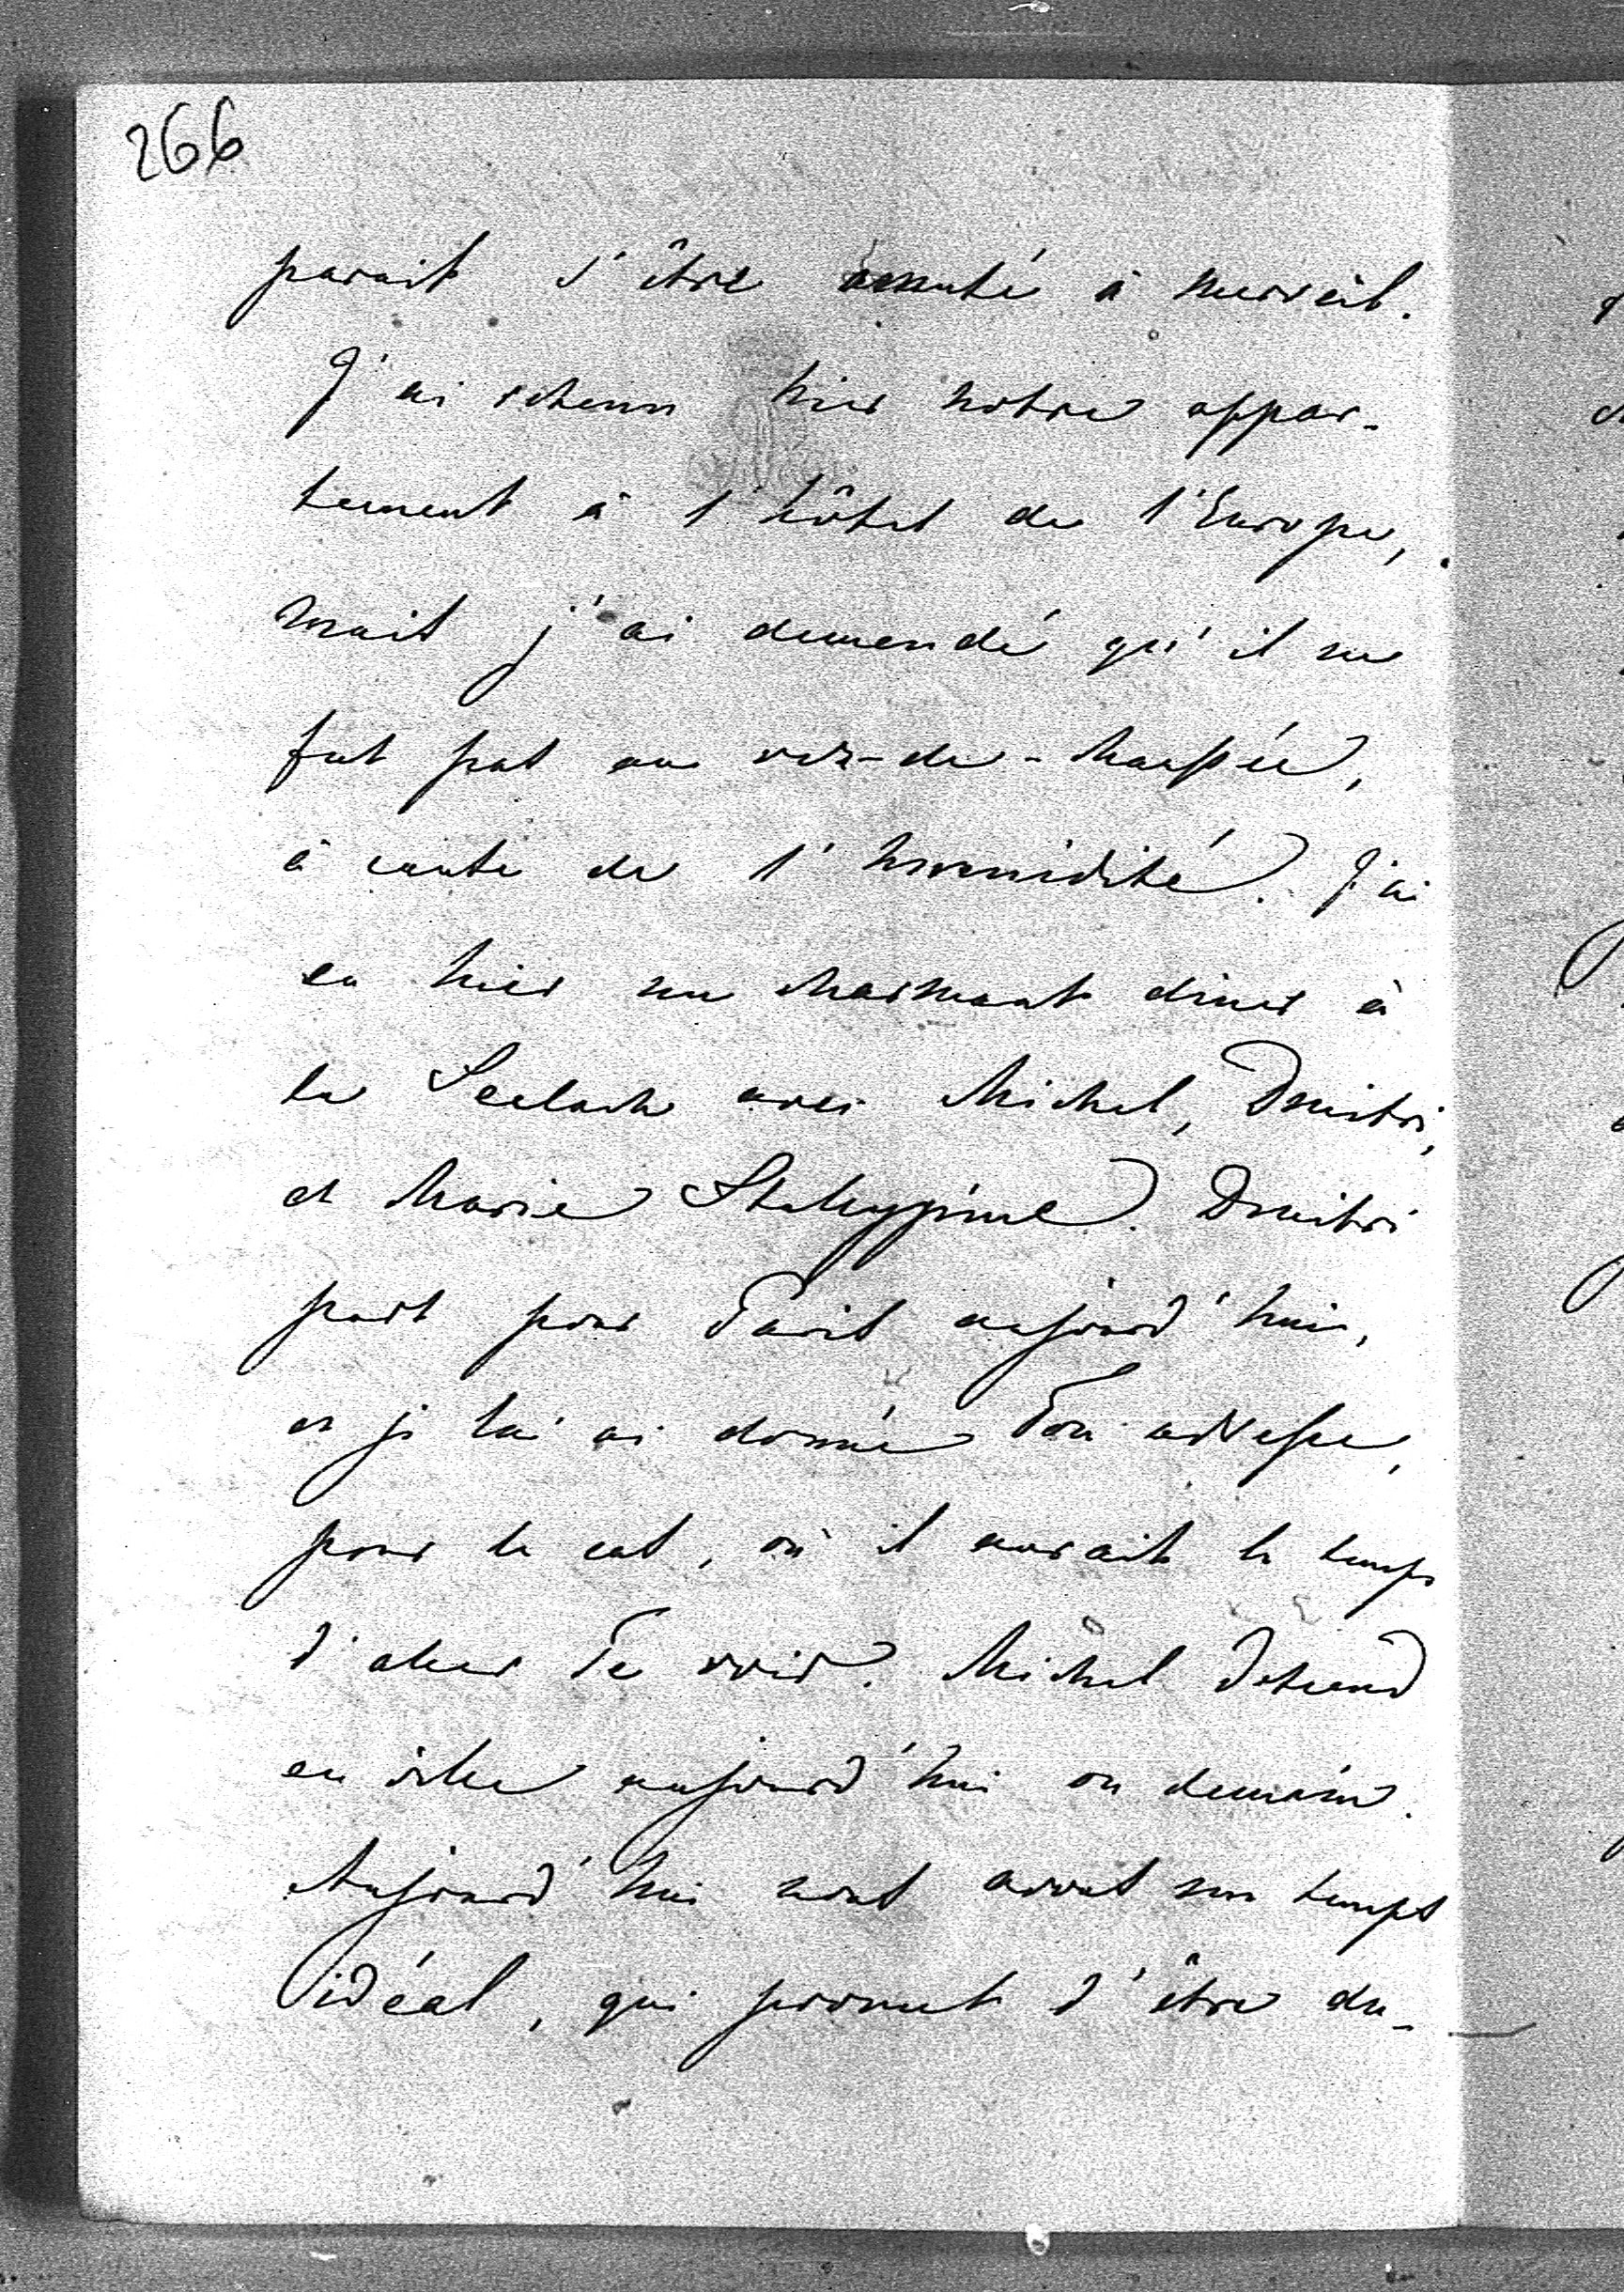 266
parait s'être amusé à merveil.
J'ai retenu hier notre appar-
tement à l'hôtel de l'Europe,
mais j'ai demandé qu'il ne
fut pas au rez-de-chaussée,
à cause de l'humidité. J'ai
eu hier un charmant diner à
la Seelach avec Michel, Dmitri,
et Marie Stolypine. Dmitri
part pour Paris aujourd'hui,
et je lui ai donné Ton adresse,
pour le cas, où il aurait le temps
d'aller Te voir. Michel descend
en ville aujourd'hui ou demain.
Aujourd'hui nous avons un temps
idéal, qui promet d'être du-